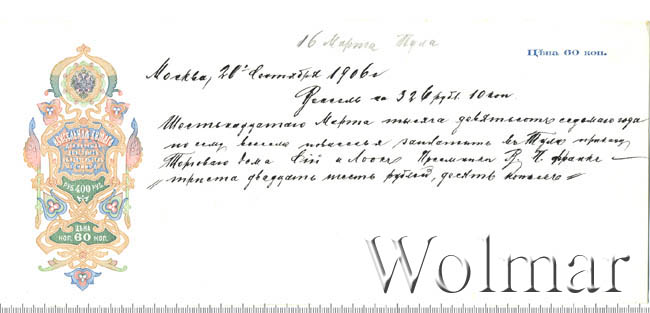 16 Марта Тула
Цѣна 60 коп.
Москва, 20 Сентября 1906 г
Вексель на 326 рубл. 10 коп
Шестнадцатаго Марта тысяча девятьсотъ седьмого года
по сему векселю повиненъ заплатить въ Тулѣ приказу
Торговаго дома и Преемники Франке
триста двадцать шесть рублей, десять копѣекъ
ВЕКСЕЛЬНАЯ БУМАГА
РУБ 400 РУБ
ЦѢНА
КОП. 60 КОП.
Wolmar